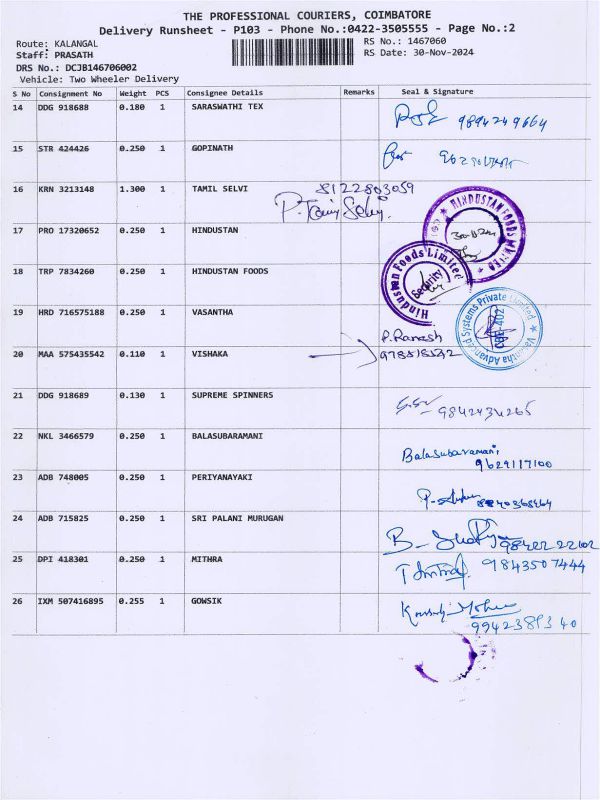 THE PROFESSIONAL COURIERS, COIMBATORE
Delivery Runsheet - P103 - Phone No.:0422-3505555 - Page No.:2
Route: KALANGAL
RS No.: 1467060
Staff: PRASATH
RS Date: 30-Nov-2024
DRS No.: DCJB146706002
Vehicle: Two Wheeler Delivery
S No Consignment No Weight PCS Consignee Details Remarks Seal & Signature
14 DDG 918688 0.180 1 SARASWATHI TEX
9894249664
15 STR 424426 0.250 1 GOPINATH
16 KRN 3213148 1.300 1 TAMIL SELVI 8122803059
P. Tamil Selvi.
HINDUSTAN FOODS LIMITED
17 PRO 17320652 0.250 1 HINDUSTAN
Hindustan Foods Limited
Security
18 TRP 7834260 0.250 1 HINDUSTAN FOODS
19 HRD 716575188 0.250 1 VASANTHA
Vasantha Advanced Systems Private Limited
P. Ramesh
20 MAA 575435542 0.110 1 VISHAKA
21 DDG 918689 0.130 1 SUPREME SPINNERS
9842434265
22 NKL 3466579 0.250 1 BALASUBARAMANI
Balasubaramani
9629117100
23 ADB 748005 0.250 1 PERIYANAYAKI
24 ADB 715825 0.250 1 SRI PALANI MURUGAN
98422 22102
25 DPI 418301 0.250 1 MITHRA
9843507444
26 IXM 507416895 0.255 1 GOWSIK